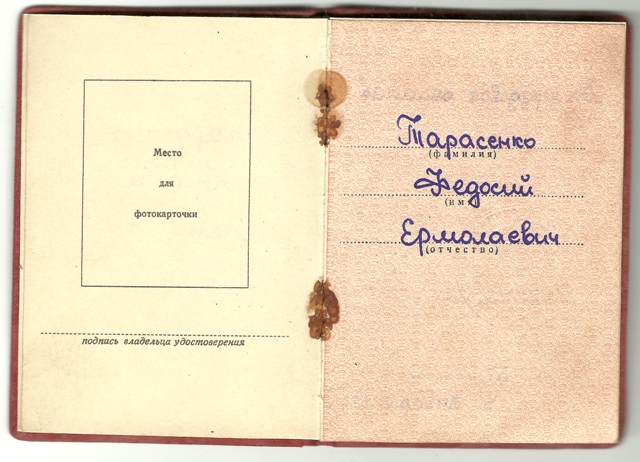 Место
для
фотокарточки
подпись владельца удостоверения
Тарасенко
(фамилия)
Федосий
(имя)
Ермолаевич
(отчество)